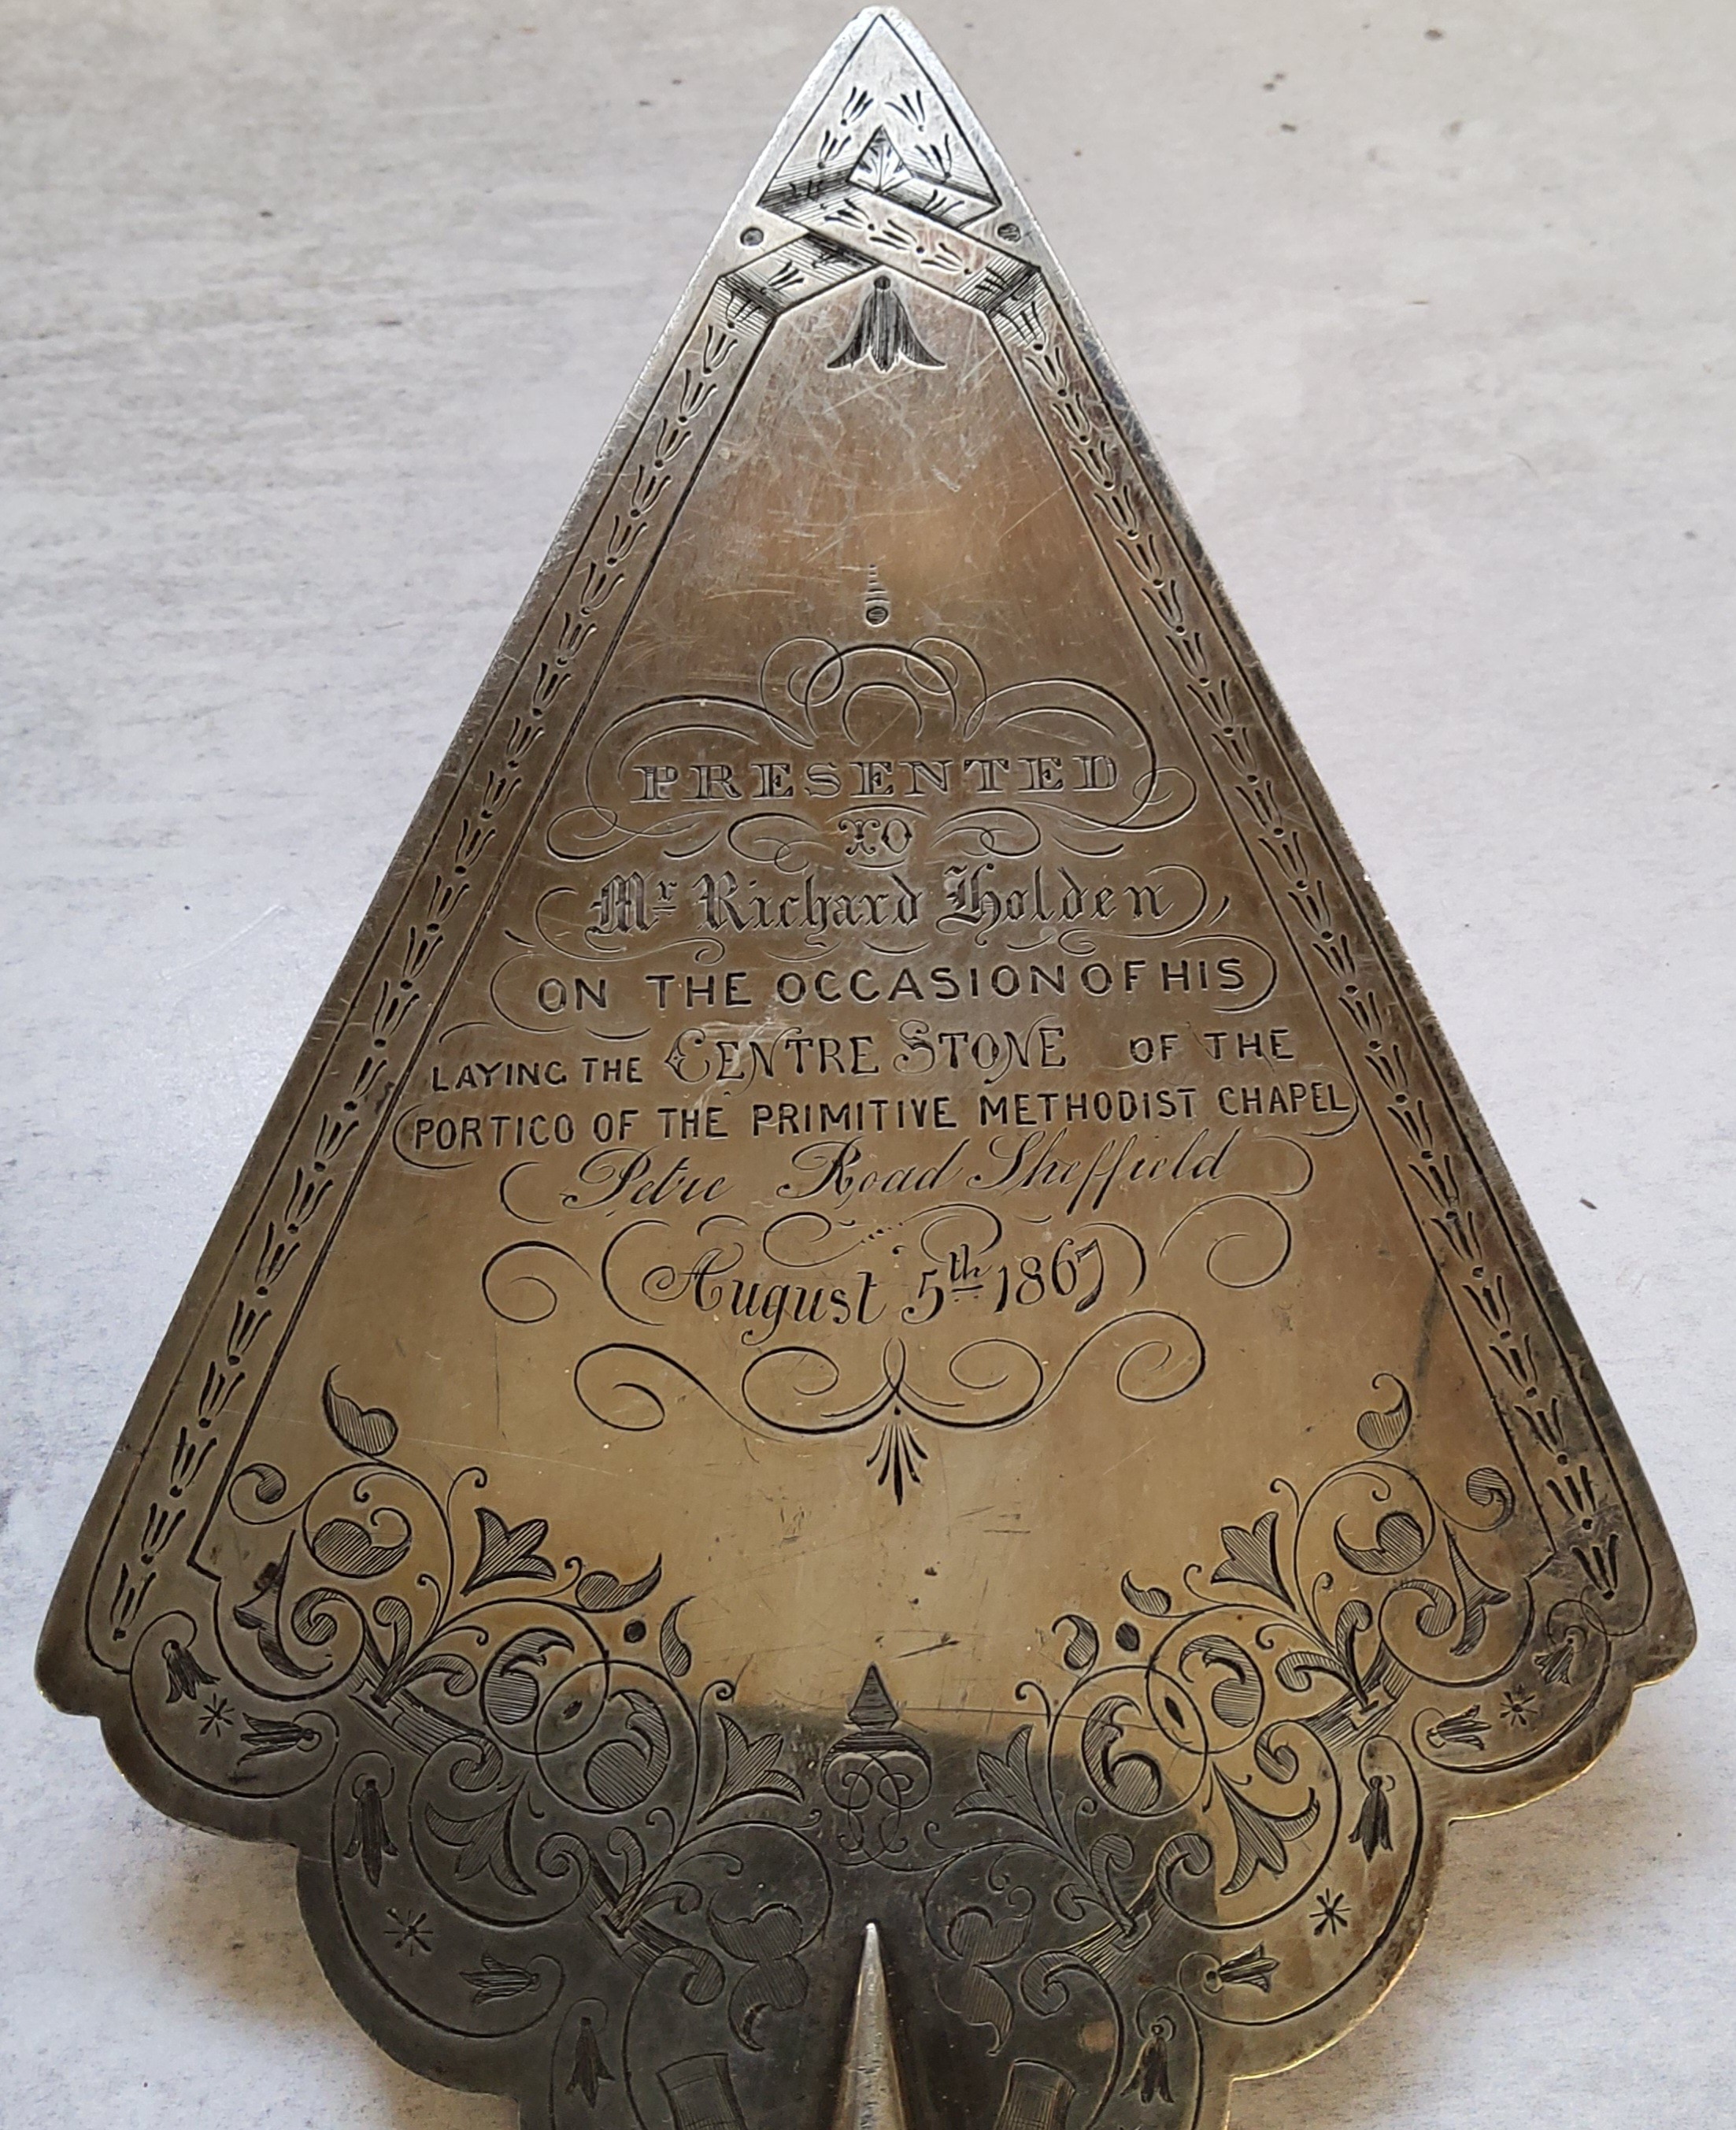 PRESENTED
TO
Mr Richard Holden,
ON THE OCCASION OF HIS
LAYING THE CENTRE STONE OF THE
PORTICO OF THE PRIMITIVE METHODIST CHAPEL
Petre Road Sheffield
August 5th 1867